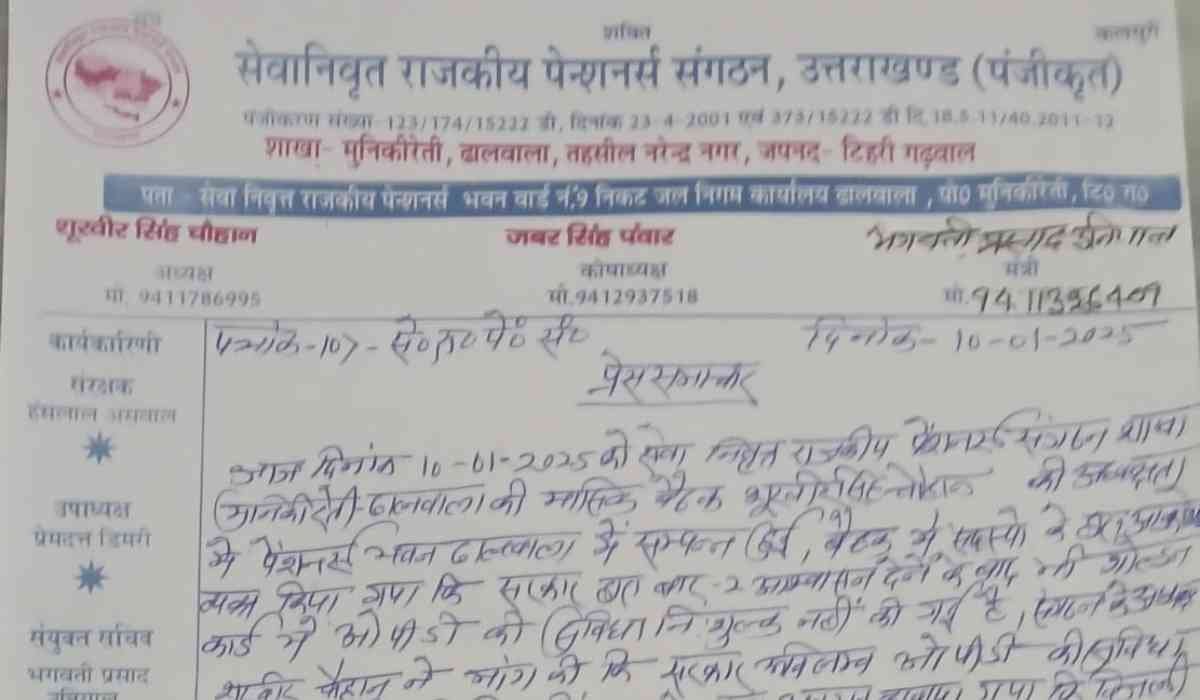 शक्ति
सेवानिवृत राजकीय पेन्शनर्स संगठन, उत्तराखण्ड (पंजीकृत)
पंजीकरण संख्या-123/174/15222 डी, दिनांक 23-4-2001 एवं 373/15222 डी दि. 18.5.11/40.2011-12
शाखा- मुनिकीरेती, ढालवाला, तहसील नरेन्द्र नगर, जपनद- टिहरी गढ़वाल
पता - सेवा निवृत्त राजकीय पेन्शनर्स भवन वार्ड नं.9 निकट जल निगम कार्यालय ढालवाला, पो0 मुनिकीरेती, टि0 ग0
शूरवीर सिंह चौहान जबर सिंह पंवार भगवती प्रसाद उनियाल
अध्यक्ष कोषाध्यक्ष मंत्री
मो. 9411786995 मो.9412937518 मो.9411396409
कार्यकारिणी
संरक्षक
हंसलाल असवाल
उपाध्यक्ष
प्रेमदत्त डिमरी
संयुक्त सचिव
भगवती प्रसाद
उनियाल
पत्रांक-107- से०रा०पे०सं० दिनांक- 10-01-2025
प्रेस समाचार
आज दिनांक 10-01-2025 को सेवा निवृत राजकीय पेंशनर्स संगठन शाखा
मुनिकीरेती-ढालवाला की मासिक बैठक शूरवीर सिंह चौहान की अध्यक्षता
में पेंशनर्स भवन ढालवाला में सम्पन्न हुई, बैठक में सदस्यो के द्वारा आक्रोश
व्यक्त किया गया कि सरकार द्वारा बार-2 आश्वासन देने के बाद भी गोल्डन
कार्ड में ओपीडी की सुविधा निःशुल्क नहीं की गई है, संगठन के अध्यक्ष
शूरवीर चौहान ने मांग की कि सरकार अविलम्ब ओपीडी की सुविधा
गया कि